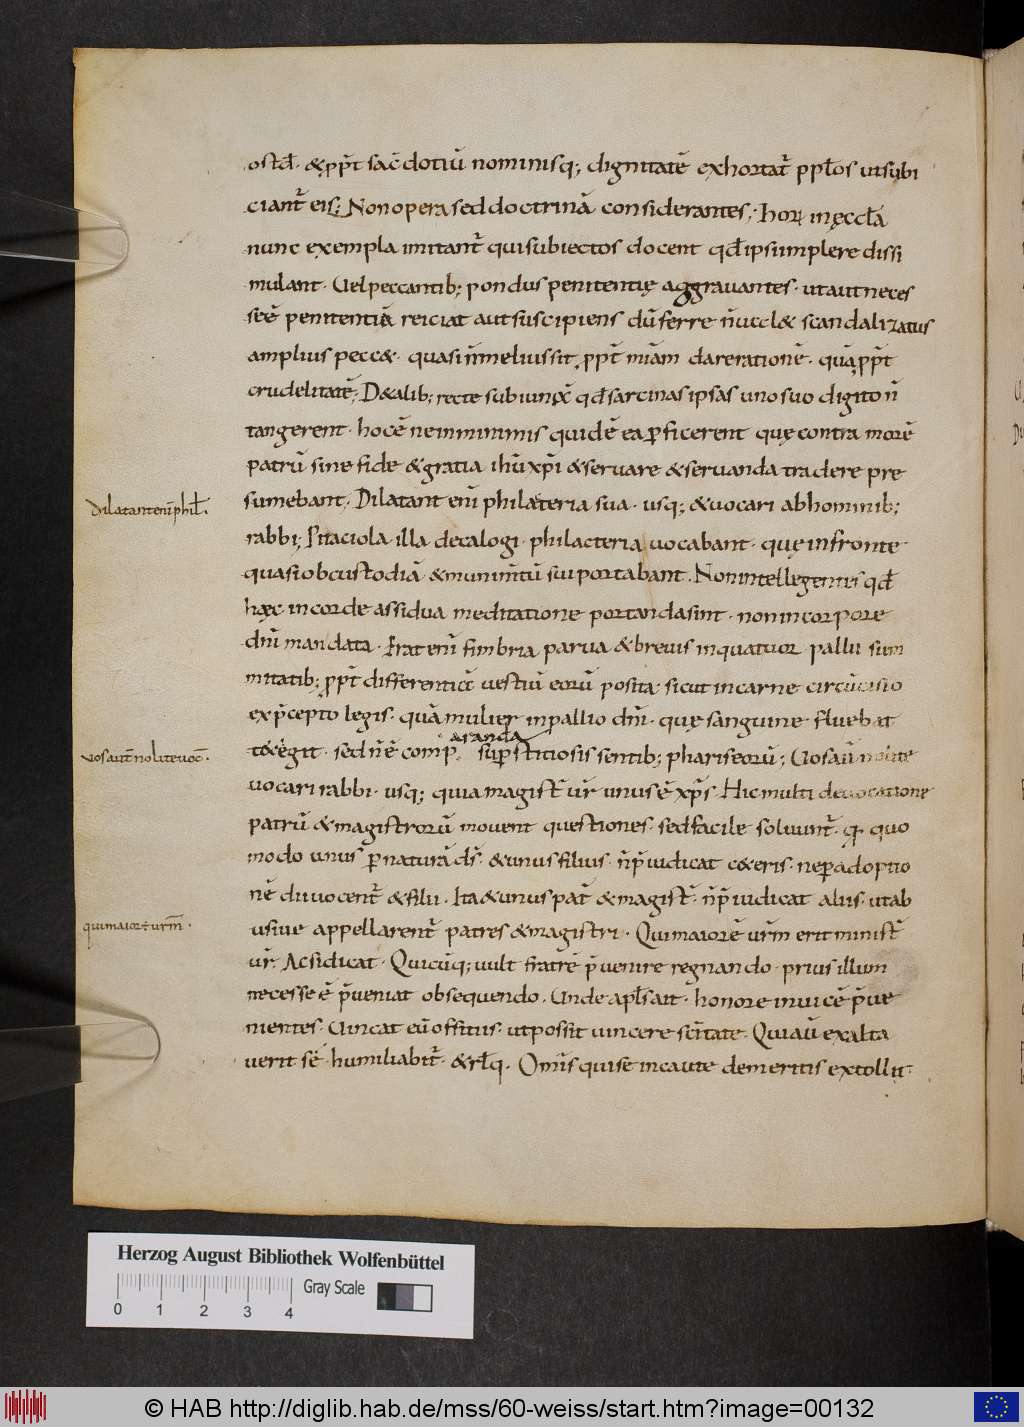 ostd̄. &ꝓpt̄ sac̄dotiū nominisq; dignitatē exhortat̄ ppłos utsubi
ciant̄ eis; Nonopera sed doctrinā considerantes; hoꝝ inęccła
nunc exempla imitant̄ quisubiectos docent qd̄ipsi implere dissi
mulant. Uelpeccantib; pondus penitentię aggrauantes. utautneces
seē penitentiā reiciat autsuscipiens dūferre n̄ual& scandalizatus
amplius pecc&. quasi n̄meliussit ꝓpt̄ miā(m) darerationē. quā ꝓpt̄
crudelitatē; D&alib; recte subiunx̄ qd̄sarcinas ipsas unosuo digito n̄
tangerent. hocē neinminimis quidē ea ꝑficerent quę contra morē
patrū sine fide &gratia ihū xp̄i &seruare &seruanda tradere pre
sumebant. Dilatant eni̅ philateria sua. usq; &uocari abhominib;
rabbi; Pitaciola illa decalogi. philacteria uocabant. quę infronte
quasiobcustodiā &munim̄tū sui portabant. Nonintellegentes qd̄
hęc incorde assidua meditatione portandasint. nonincorpore
dn̄i mandata. Erat eni̅ fimbria parua &breuis inquatuor pallii sum
mitatib; ꝓpt̄ differentiā uestiū eorū posita sicut incarne circūcisio
exp̄cepto legis. quā mulier inpallio dn̄i. quę sanguine fluebat
t&egit. sed n̄ē comp. aranda suꝑstitiosis sentib; phariseorū; Uosaū nolite
Dilatanteni̅phił.
uosaut̄noliteuoc̄.
uocari rabbi. usq; quia magist̄ ur̄ unus ē xp̄s. Hic multi deuocatione
patrū &magistrorū mouent questiones. sedfacile soluunt̄. quo
modo unus ꝑnaturā ds̄. &unusfilius. n̄p̄iudicat c&eris. neꝑadoptio
nē dii uocent̄ &filii. Ita&unus pat̄ &magist̄. n̄p̄iudicat aliis. utab
usiue appellarent̄ patres &magistri. Quimaiorē ur̄m erit minist̄
quimaior÷ur̄m.
ur̄. Acsidicat. Quicūq; uult fratrē p̄uenire regnando. prius illum
necesse ē p̄ueniat obsequendo. Unde apłs ait. honore inuicē p̄ue
nientes. Uincat eū offitiis. utpossit uincere sc̄itate. Quiaū exalta
uerit sē. humiliabit̄. &rłq. Om̄is quise incaute demeritis extollit.
Herzog August Bibliothek Wolfenbüttel
Gray Scale
0 1 2 3 4
© HAB http://diglib.hab.de/mss/60-weiss/start.htm?image=00132